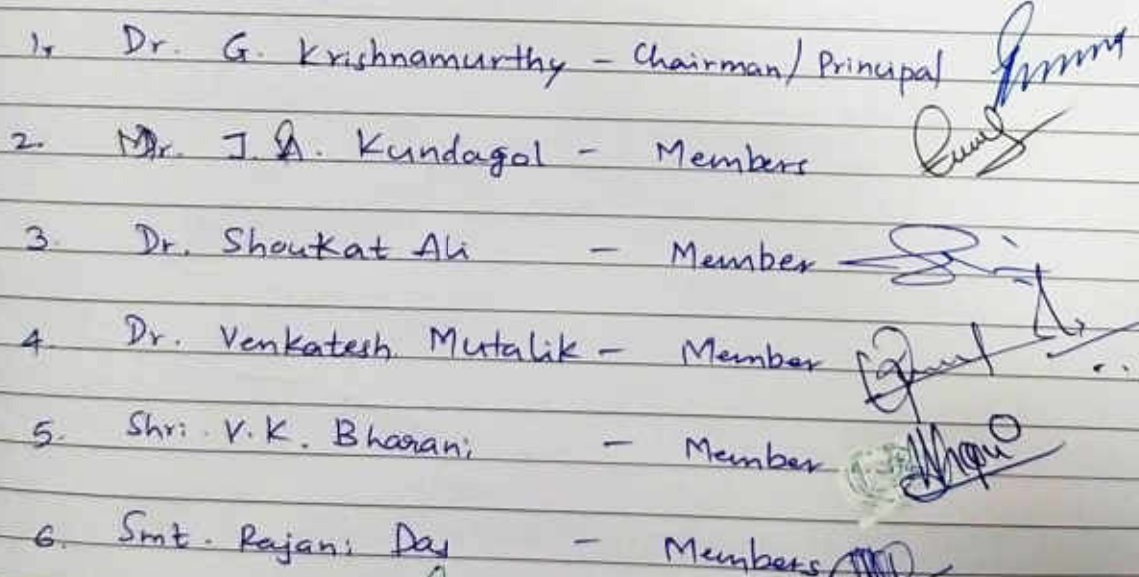 1, Dr. G. Krishnamurthy - Chairman/ Principal
2. Dr. J. A. Kundagol - Members
3. Dr. Shoukat Ali - Member
4. Dr. Venkatesh Mutalik - Member
5. Shri. V. K. Bharani - Member
6. Smt. Rajani Das - Members